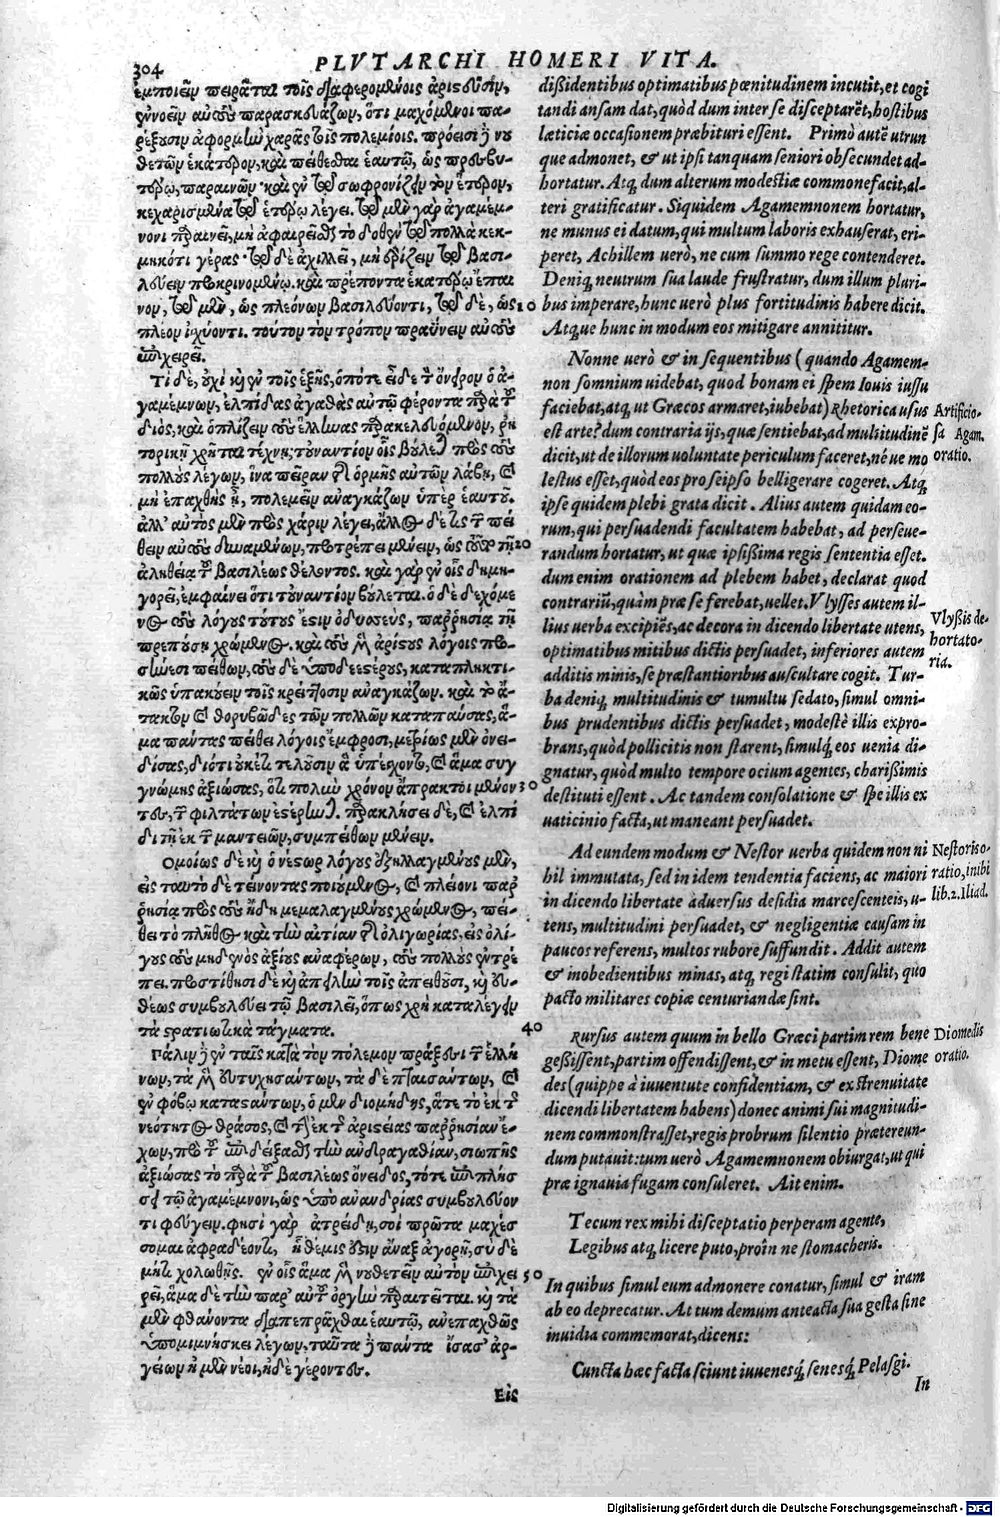 304
PLVTARCHI HOMERI VITA.
ἐμποιεῖν πειρᾶται τοῖς διαφερομένοις ἀριστεῦσιν,
ἐννοεῖν αὐτοὺς παρασκευάζων, ὅτι μαχόμενοι πα-
ρέξουσιν ἀφορμὴν χαρᾶς τοῖς πολεμίοις. πρόεισι δὲ νου
θετῶν ἑκάτερον, καὶ πείθεσθαι ἑαυτῷ, ὡς πρεσβυ-
τέρῳ, παραινῶν· καὶ ἐν τῷ σωφρονίζειν τὸν ἕτερον,
κεχαρισμένα τῷ ἑτέρῳ λέγει. τῷ μὲν γὰρ ἀγαμέμ-
νονι παραινεῖ, μὴ ἀφαιρεῖσθαι τὸ δοθὲν τῷ πολλὰ κεκ-
μηκότι γέρας· τῷ δὲ ἀχιλλεῖ, μὴ ὑβρίζειν τῷ βασι-
λεύειν προκρινομένῳ. καὶ πρέποντα ἑκατέρῳ ἔπαι
νον, τῷ μὲν, ὡς πλεόνων βασιλεύοντι, τῷ δὲ, ὡς
πλέον ἰχύοντι. τοῦτον τὸν τρόπον πραΰνειν αὐτοὺς
ἐπιχειρεῖ.
Τί δὲ, οὐχὶ κὴ ἐν τοῖς ἑξῆς, ὁπότε εἶδε τὸν ὄνειρον ὁ ἀ-
γαμέμνων, ἐλπίδας ἀγαθὰς αὐτῷ φέροντα παρὰ τοῦ
διὸς, καὶ ὁπλίζειν τοὺς ἕλληνας παρακελευόμενον, ῥη
τορικῇ χρῆται τέχνῃ; τουναντίον οἷς βούλεται πρὸς τοὺς
πολλοὺς λέγων, ἵνα πεῖραν τῆς ὁρμῆς αὐτῶν λάβῃ, καὶ
μὴ ἐπαχθὴς ᾖ, πολεμεῖν ἀναγκάζων ὑπὲρ ἑαυτοῦ.
ἀλλ' αὐτὸς μὲν πρὸς χάριν λέγει, ἄλλος δέ τις τῶν πεί
θειν αὐτοὺς δυναμένων, προτρέπει μένειν, ὡς τοῦτο τῇ
ἀληθείᾳ τοῦ βασιλέως θέλοντος. καὶ γὰρ ἐν οἷς δημη-
γορεῖ, ἐμφαίνει ὅτι τουναντίον βούλεται. ὁ δὲ δεχόμε
νος τοὺς λόγους τούτους ἔστιν ὀδυσσεὺς, παρρησίᾳ τῇ
πρεπούσῃ χρώμενος. καὶ τοὺς μὲν ἀρίστους λόγοις προ-
σηνέσι πείθων, τοὺς δὲ ὑποδεεστέρους, καταπληκτι-
κῶς ὑπακούειν τοῖς κρείττοσιν ἀναγκάζων. καὶ τὸ ἄ-
τακτον καὶ θορυβῶδες τῶν πολλῶν καταπαύσας, ἅ-
μα πάντας πείθει λόγοις ἔμφροσι, μετρίως μὲν ὀνει-
δίσας, διότι οὐκέτι τελοῦσιν ἃ ὑπέσχοντο, καὶ ἅμα συγ
γνώμης ἀξιώσας, ὅτι πολὺν χρόνον ἄπρακτοι μένον
τες, τῶν φιλτάτων ἐστέρηνται. παρακλήσει δὲ, καὶ ἐλπί
δι τῇ ἐκ τῶν μαντειῶν, συμπείθων μένειν.
Ομοίως δὲ κὴ ὁ νέστωρ λόγους ἐξηλλαγμένους μὲν,
εἰς ταυτὸ δὲ τείνοντας ποιούμενος, καὶ πλείονι παρ
ρησίᾳ πρὸς τοὺς ἤδη μεμαλαγμένους χρώμενος, πεί-
θει τὸ πλῆθος καὶ τὴν αἰτίαν τῆς ὀλιγωρίας, εἰς ὀλί-
γους τοὺς μηδενὸς ἀξίους ἀναφέρων, τοὺς πολλοὺς ἐντρέ
πει. προστίθησι δὲ κὴ ἀπειλὴν τοῖς ἀπειθοῦσι, κὴ εὐ-
θέως συμβουλεύει τῷ βασιλεῖ, ὅπως χρὴ καταλέγειν
τὰ στρατιωτικὰ τάγματα.
Γάλιν δὲ ἐν ταῖς κατὰ τὸν πόλεμον πράξεσι τῶν ἑλλή
νων, τὰ μὲν εὐτυχησάντων, τὰ δὲ πταισάντων, καὶ
ἐν φόβῳ καταστάντων, ὁ μὲν διομήδης, ἅτε τὸ ἐκ τῆς
νεότητος θράσος, καὶ τὴν ἐκ τῆς ἀριστείας παρρησίαν ἔ-
χων, πρὸ τοῦ ἐπιδείξασθαι τὴν ἀνδραγαθίαν, σιωπῆς
ἀξιώσας τὸ παρὰ τοῦ βασιλέως ὄνειδος, τότε ἐπιπλήσ
σει τῷ ἀγαμέμνονι, ὡς ὑπὸ ἀνανδρίας συμβουλεύον
τι φεύγειν. φησὶ γὰρ ἀτρείδη, σοὶ πρῶτα μαχέσ
σομαι ἀφραδέοντι, ἣ θέμις ἐστὶν ἄναξ ἀγορῇ, σὺ δὲ
μήτι χολωθῇς. ἐν οἷς ἅμα μὲν νουθετεῖν αὐτὸν ἐπιχει
ρεῖ, ἅμα δὲ τὴν παρ' αὐτοῦ ὀργὴν παραιτεῖται. κὴ τὰ
μὲν φθάνοντα διαπεπρᾶχθαι ἑαυτῷ, ἀνεπαχθῶς
ὑπομιμνήσκει λέγων, ταῦτα δὲ πάντα ἴσασ' ἀρ-
γείων ἠμὲν νέοι, ἠδὲ γέροντες.
Εἰς
10
20
30
40
50
dißidentibus optimatibus pœnitudinem incutit, et cogi
tandi ansam dat, quòd dum inter se disceptarēt, hostibus
læticiæ occasionem præbituri essent. Primò autē utrun
que admonet, & ut ipsi tanquam seniori obsecundet ad-
hortatur. Atq; dum alterum modestiæ commonefacit, al-
teri gratificatur. Siquidem Agamemnonem hortatur,
ne munus ei datum, qui multum laboris exhauserat, eri-
peret, Achillem uerò, ne cum summo rege contenderet.
Deniq; neutrum sua laude frustratur, dum illum pluri-
bus imperare, hunc uerò plus fortitudinis habere dicit.
Atque hunc in modum eos mitigare annititur.
Nonne uerò & in sequentibus (quando Agamem-
non somnium uidebat, quod bonam ei spem Iouis iussu
faciebat, atq; ut Græcos armaret, iubebat) Rhetorica usus
est arte? dum contraria ijs, quæ sentiebat, ad multitudinē
dicit, ut de illorum uoluntate periculum faceret, né ue mo
lestus esset, quòd eos pro seipso belligerare cogeret. Atq;
ipse quidem plebi grata dicit. Alius autem quidam eo-
rum, qui persuadendi facultatem habebat, ad perseue-
randum hortatur, ut quæ ipsißima regis sententia esset.
dum enim orationem ad plebem habet, declarat quod
contrariū, quàm præ se ferebat, uellet. Vlysses autem il-
lius uerba excipiēs, ac decora in dicendo libertate utens,
optimatibus mitibus dictis persuadet, inferiores autem
additis minis, se præstantioribus auscultare cogit. Tur-
ba deniq; multitudinis & tumultu sedato, simul omni-
bus prudentibus dictis persuadet, modestè illis expro-
brans, quòd pollicitis non starent, simulq́; eos uenia di-
gnatur, quòd multo tempore ocium agentes, charißimis
destituti essent. Ac tandem consolatione & spe illis ex
uaticinio facta, ut maneant persuadet.
Ad eundem modum & Nestor uerba quidem non ni
hil immutata, sed in idem tendentia faciens, ac maiori
in dicendo libertate aduersus desidia marcescenteis, u-
tens, multitudini persuadet, & negligentiæ causam in
paucos referens, multos rubore suffundit. Addit autem
& inobedientibus minas, atq; regi statim consulit, quo
pacto militares copiæ centuriandæ sint.
Rursus autem quum in bello Græci partim rem bene
geßissent, partim offendissent, & in metu essent, Diome
des (quippe à iuuentute confidentiam, & ex strenuitate
dicendi libertatem habens) donec animi sui magnitudi-
nem commonstrasset, regis probrum silentio prætereun-
dum putauit: tum uerò Agamemnonem obiurgat, ut qui
præ ignauia fugam consuleret. Ait enim.
Tecum rex mihi disceptatio perperam agente,
Legibus atq; licere puto, proîn ne stomacheris.
In quibus simul eum admonere conatur, simul & iram
ab eo deprecatur. At tum demum anteacta sua gesta sine
inuidia commemorat, dicens:
Cuncta hæc facta sciunt iuuenesq́; senesq́; Pelasgi.
In
Artificio-
sa Agam.
oratio.
Vlyßis de-
hortato-
ria.
Nestoris o-
ratio, inibi
lib. 2. Iliad.
Diomedis
oratio.
Digitalisierung gefördert durch die Deutsche Forschungsgemeinschaft - DFG